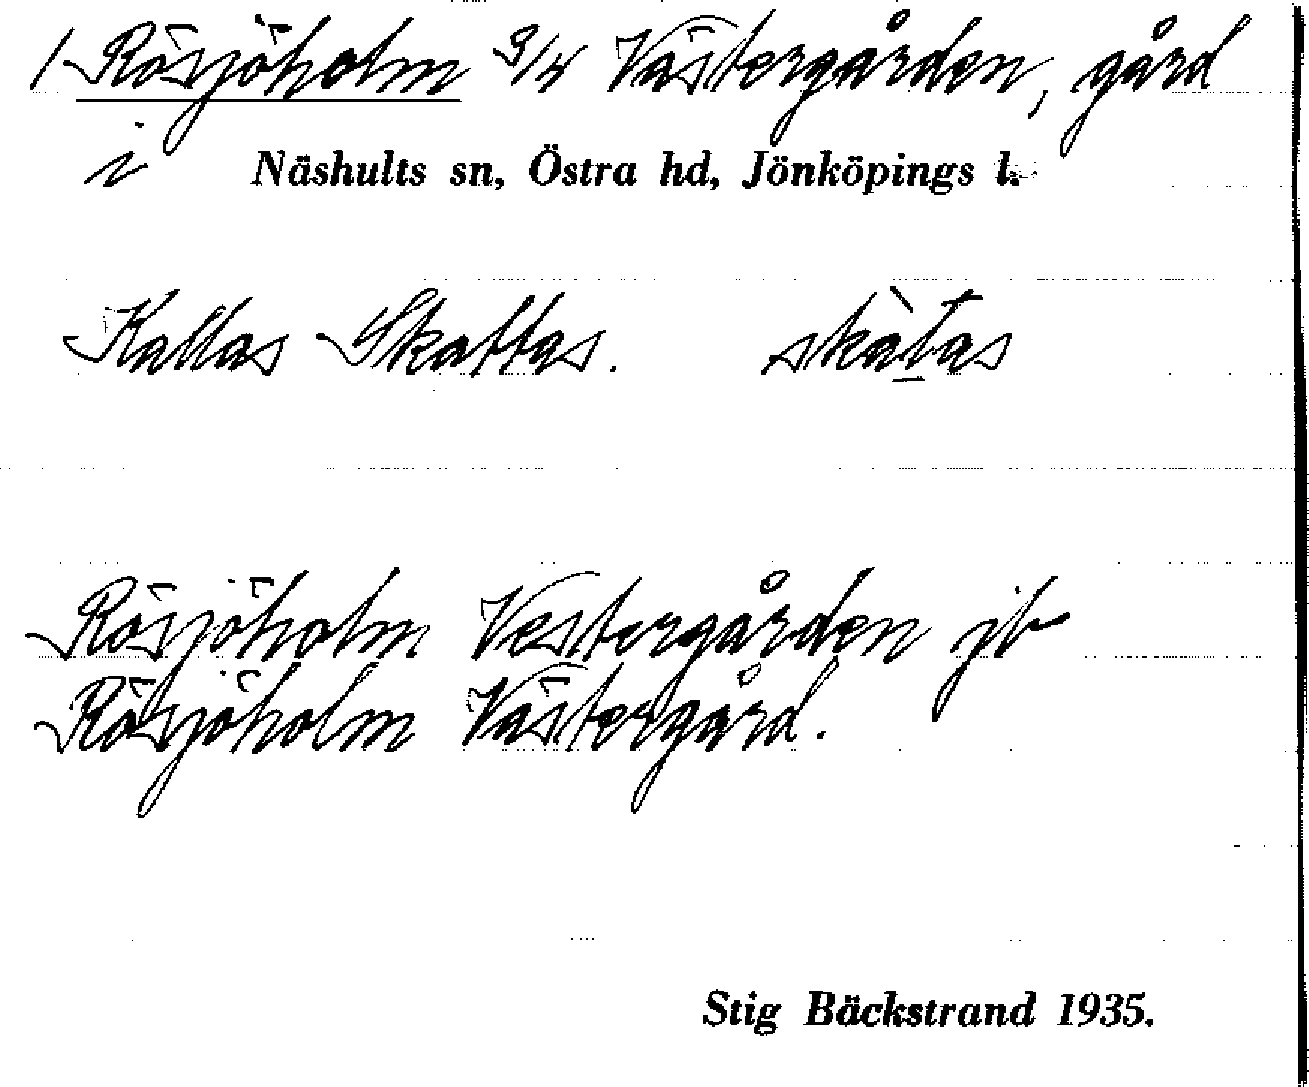 1 Rösjöholm 3/4 Västergården, gård
i Näshults sn, Östra hd, Jönköpings l.
Kallas Skattas. skàtas
Rösjöholm Vestergården jb
Rösjöholm Västergård.
Stig Bäckstrand 1935.